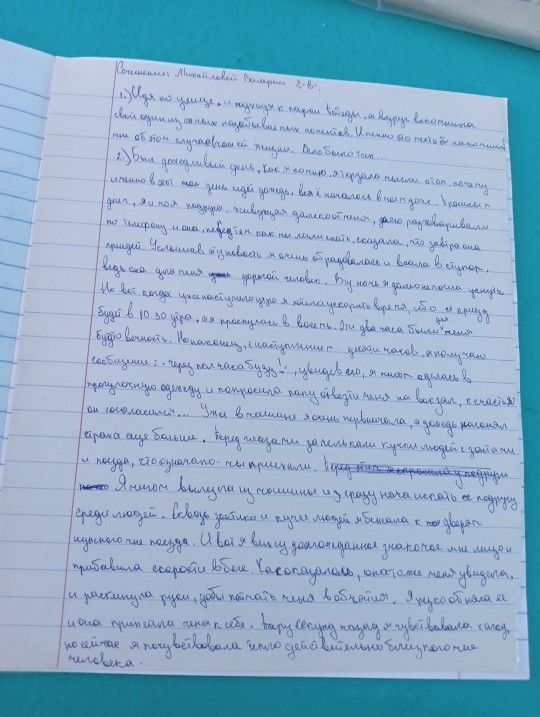 Сочинение: Михайловой Валерии 8 «в».
1.) Идя по улице, и подходя к парку победы, я вдруг вспомнила
свой один из самых незабываемых моментов. И именно это место напомнило
мне об этом случае в моей жизни. Дело было так...
2.) Был дождливый день, как я помню, я терзала мысли о том, почему
именно в этот день идёт дождь. Всё началось в том году. Прошлым
днём, я и моя подруга, живущая далеко от меня, долго разговаривали
по телефону и она, перед тем как мы легли спать, сказала, что завтра она
приедет. Услышав эту новость я очень обрадовалась и впала в ступор,
ведь она для меня дорогой человек. Эту ночь я долго не могла уснуть.
Но вот когда уже наступило утро я хотела ускорить время, ибо её приезд
будет в 10:30 утра, а я проснулась в восемь. Эти два часа были для меня
будто вечность. Но наконец, с наступлением десяти часов, я получаю
сообщение: "через пол часа буду!", увидев его, я мигом оделась в
прогулочную одежду и попросила папу отвезти меня на вокзал, к счастью
он согласился... Уже в машине я очень нервничала, а дождь нагонял
страха ещё больше. Перед глазами замелькали кучки людей с зонтами
и поезда, что означало - мы приехали.
Я мигом вылезла из машины и сразу начала искать подругу
среди людей. Сквозь зонтики и кучи людей я бежала к дверям
нужного мне поезда. И вот я вижу долгожданное знакомое мне лицо и
прибавила скорости в беге. Как оказалось, она тоже меня увидела,
и раскинула руки, дабы поймать меня в объятия. Я резко обняла её
и она прижала меня к себе. Пару секунд назад я чувствовала холод,
но сейчас я почувствовала тепло действительно близкого мне
человека.